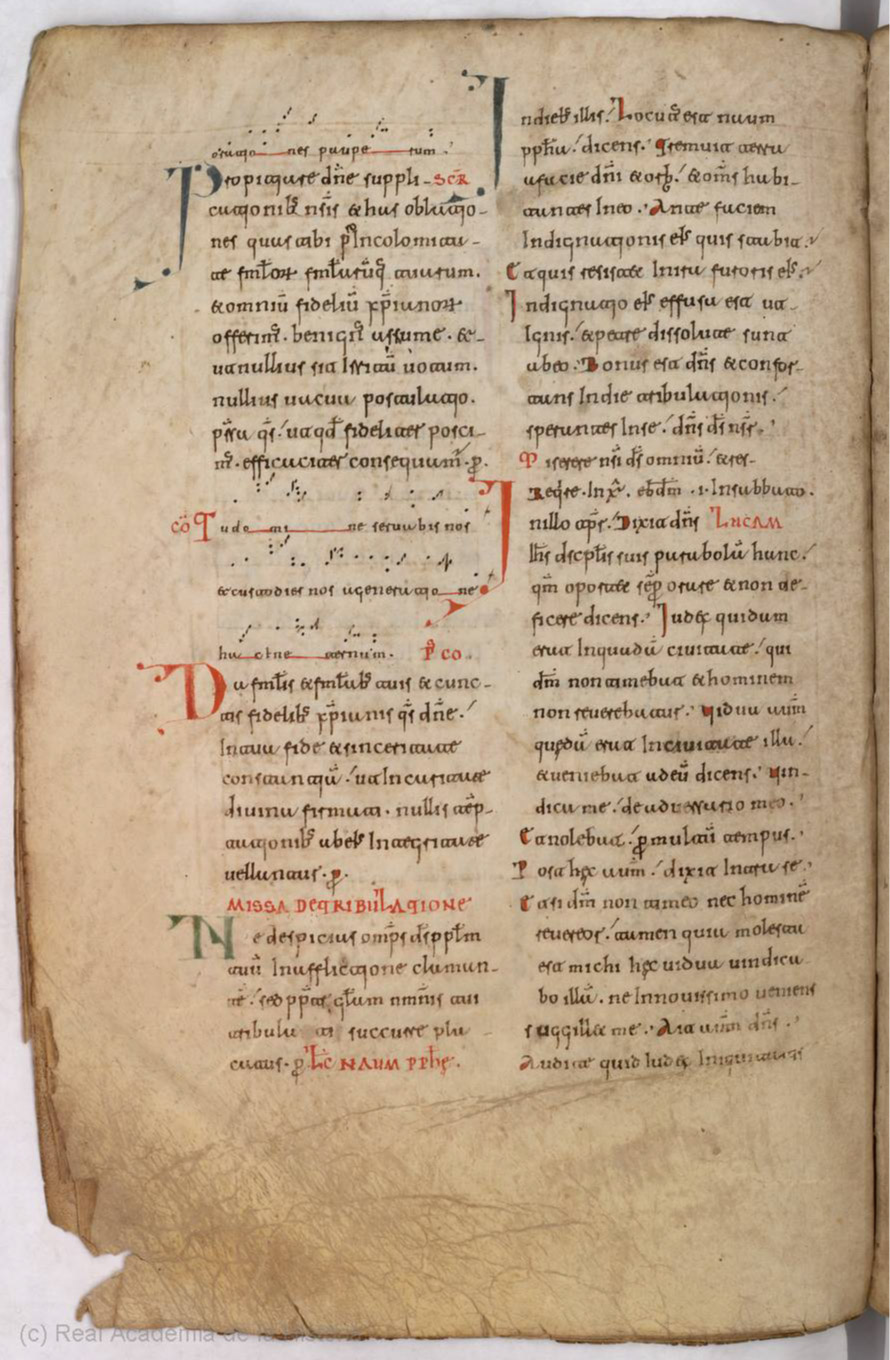 oratio nes paupe rum.
Propitiare dn̄e suppli- SCR̄
cationib; nr̄is & has oblatio-
nes quas tibi p̄ Incolomita-
te fml̄or fml̄arūq; tuarum.
& omniū fideliū xp̄ianor
offerim̄. benign̄s assume. &-
ut nullius sit Irritū uotum.
nullius uacua postulatio.
pr̄sta qs̄. ut qd̄ fideliter peti-
m̄. efficaciter consequam̄. p̄.
cō Tu do mi ne seruabis nos
& custodies nos ageneratio ne
hac & Ine ternum. P̄ CO.
Da fml̄is & fml̄ab; tuis & cunc-
tis fidelib; xp̄ianis qs̄ dn̄e.
In tua fide & sinceritate
constantiā. ut In caritate
diuina firmati. nullis tēp-
tationib; ab ei; Integritate
uellantur. p̄.
MISSA DE TRIBULATIONE
Ne despicias omp̄s ds̄ pplm̄
tuū In afflictione claman-
te. sed ppt̄ gl̄am nmn̄is tui
tribula tis succurre pla
catus. p̄ LC̄ NAUM PPHE.
In dieb; illis. Locuta est naum
pph̄a. dicens. Tremuit terra
a facie dn̄i & orb;. & om̄s habi-
tantes In eo. Ante faciem
Indignationis ei; quis stabit.
Et quis resistet In ira furoris ei;.
Indignatio ei; effusa est ut
Ignis. & petre dissolute sunt
ab eo. Bonus est dn̄s & confor-
tans In die tribulationis.
sperantes In se. dn̄s ds̄ nr̄.
Miserere nr̄i ds̄ omniū. & res-
Reqre. In xl̄. ebdm̄. I. In sabbato.
In illo tp̄r. Dixit dn̄s LUCAM
Ih̄s dscpl̄is suis parabolā hanc.
qm̄ oportet sēp orare & non de-
ficere dicens. Iudex quidam
erat In quadā ciuitate. qui
dm̄ non timebat & hominem
non reuerebatur. Vidua autm̄
quedā erat In ciuitate illa.
& ueniebat ad eū dicens. Vin-
dica me. de aduersario meo.
Et nolebat. p̄ multū tempus.
Post hec autm̄. dixit Intra se.
Et si dm̄ non timeo nec hominē
reuereor. tamen quia molesta
est michi hec uidua uindica
bo illā. ne In nouissimo ueniens
suggillet me. Ait autm̄ dn̄s.
Audite quid Iudex Iniquitatis
(c) Real Academia de la Historia